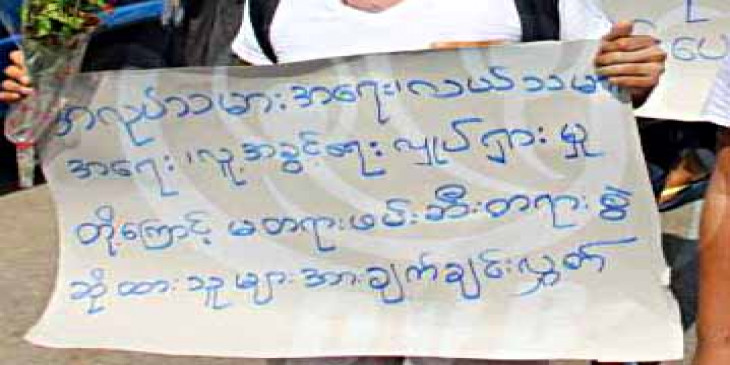 အလုပ်သမားအရေး၊လယ်သမ
အရေး၊လူ့အခွင့်ရေးလှုပ်ရှားမှု
တို့ကြောင့် မတရားဖမ်းဆီးတရားစွဲ
ဆိုထားသူများအားချက်ချင်းလွှတ်
ပေ